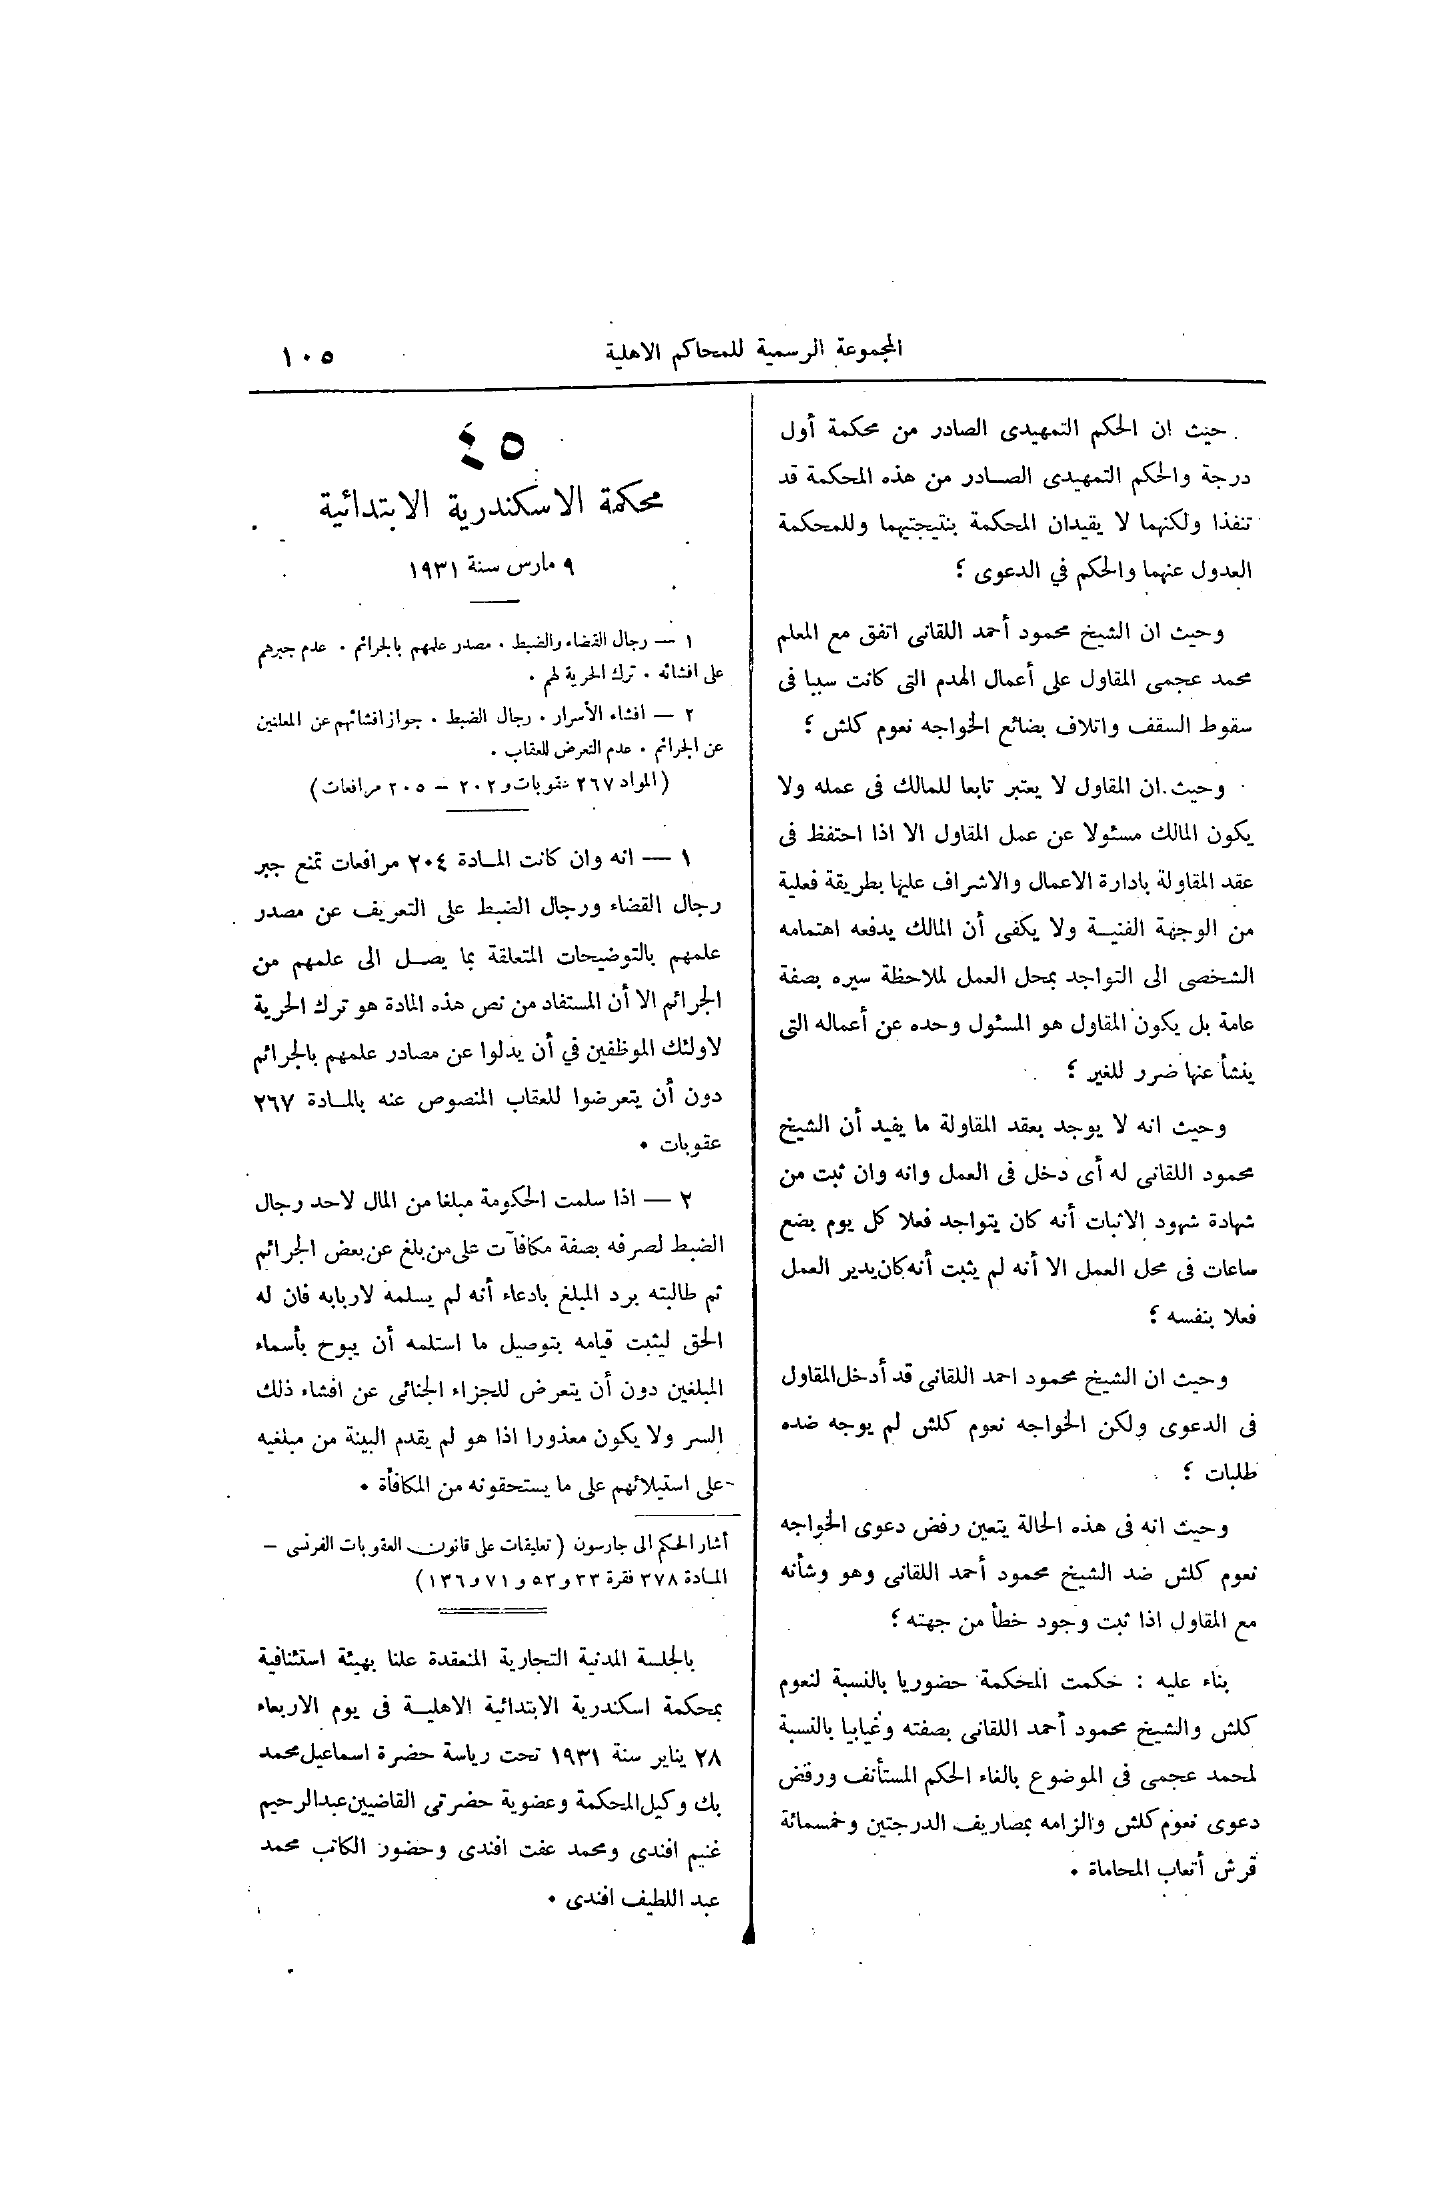 المجموعة الرسمية للمحاكم الاهلية
١٠٥
حيث ان الحكم التمهيدى الصادر من محكمة أول
درجة والحكم التمهيدى الصادر من هذه المحكمة قد
تنفذا ولكنهما لا يقيدان المحكمة بنتيجتيهما وللمحكمة
العدول عنهما والحكم في الدعوى ؛
وحيث ان الشيخ محمود أحمد اللقانى اتفق مع المعلم
محمد عجمى المقاول على أعمال الهدم التى كانت سببا فى
سقوط السقف واتلاف بضائع الخواجه نعوم كلش ؛
وحيث ان المقاول لا يعتبر تابعا للمالك فى عمله ولا
يكون المالك مسئولا عن عمل المقاول الا اذا احتفظ فى
عقد المقاولة بادارة الاعمال والاشراف عليها بطريقة فعلية
من الوجهة الفنية ولا يكفى أن المالك يدفعه اهتمامه
الشخصى الى التواجد بمحل العمل لملاحظة سيره بصفة
عامة بل يكون المقاول هو المسئول وحده عن أعماله التى
ينشأ عنها ضرر للغير ؛
وحيث انه لا يوجد بعقد المقاولة ما يفيد أن الشيخ
محمود اللقانى له أى دخل فى العمل وانه وان ثبت من
شهادة شهود الاثبات أنه كان يتواجد فعلا كل يوم بضع
ساعات فى محل العمل الا أنه لم يثبت أنه كان يدير العمل
فعلا بنفسه ؛
وحيث ان الشيخ محمود احمد اللقانى قد أدخل المقاول
فى الدعوى ولكن الخواجه نعوم كلش لم يوجه ضده
طلبات ؛
وحيث انه فى هذه الحالة يتعين رفض دعوى الخواجه
نعوم كلش ضد الشيخ محمود أحمد اللقانى وهو وشأنه
مع المقاول اذا ثبت وجود خطأ من جهته ؛
بناء عليه : حكمت المحكمة حضوريا بالنسبة لنعوم
كلش والشيخ محمود أحمد اللقانى بصفته وغيابيا بالنسبة
لمحمد عجمى فى الموضوع بالغاء الحكم المستأنف ورفض
دعوى نعوم كلش والزامه بمصاريف الدرجتين وخمسمائة
قرش أتعاب المحاماة •
٤٥
محكمة الاسكندرية الابتدائية
٩ مارس سنة ١٩٣١
١ — رجال القضاء والضبط . مصدر علمهم بالجرائم . عدم جبرهم
على افشائه . ترك الحرية لهم .
٢ — افشاء الأسرار . رجال الضبط . جواز افشائهم عن المعلنين
عن الجرائم . عدم التعرض للعقاب .
(المواد ٢٦٧ عقوبات و ٢٠٢ — ٢٠٥ مرافعات)
١ — انه وان كانت المادة ٢٠٤ مرافعات تمنع جبر
رجال القضاء ورجال الضبط على التعريف عن مصدر
علمهم بالتوضيحات المتعلقة بما يصل الى علمهم من
الجرائم الا أن المستفاد من نص هذه المادة هو ترك الحرية
لاولئك الموظفين في أن يدلوا عن مصادر علمهم بالجرائم
دون أن يتعرضوا للعقاب المنصوص عنه بالمادة ٢٦٧
عقوبات •
٢ — اذا سلمت الحكومة مبلغا من المال لاحد رجال
الضبط لصرفه بصفة مكافآت على من بلغ عن بعض الجرائم
ثم طالبته برد المبلغ بادعاء أنه لم يسلمه لاربابه فان له
الحق ليثبت قيامه بتوصيل ما استلمه أن يبوح بأسماء
المبلغين دون أن يتعرض للجزاء الجنائى عن افشاء ذلك
السر ولا يكون معذورا اذا هو لم يقدم البينة من مبلغيه
على استيلائهم على ما يستحقونه من المكافأة •
أشار الحكم الى جارسون ( تعليقات على قانون العقوبات الفرنسى —
المادة ٣٧٨ فقرة ٣٣ و ٥٣ و ٧١ و ١٣٦)
بالجلسة المدنية التجارية المنعقدة علنا بهيئة استئنافية
بمحكمة اسكندرية الابتدائية الاهلية فى يوم الاربعاء
٢٨ يناير سنة ١٩٣١ تحت رياسة حضرة اسماعيل محمد
بك وكيل المحكمة وعضوية حضرتى القاضيين عبد الرحيم
غنيم افندى ومحمد عفت افندى وحضور الكاتب محمد
عبد اللطيف افندى •